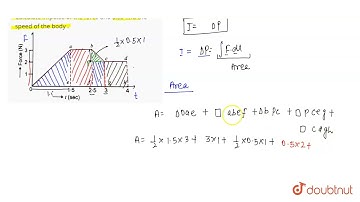 speed of the body
F
Force (N)
3
2
1
0
1·5
2·5
3
4
t
t (sec)
a
b
½×0.5×1
I = ΔP
I = ΔP = ∫F dt
Area
Area
A = Δ0ae + □ abef + Δbpc + □ pceg +
□ cdgh
A = ½ × 1.5×3 + 3×1 + ½×0.5×1 + 0.5×2 +
doubtnut